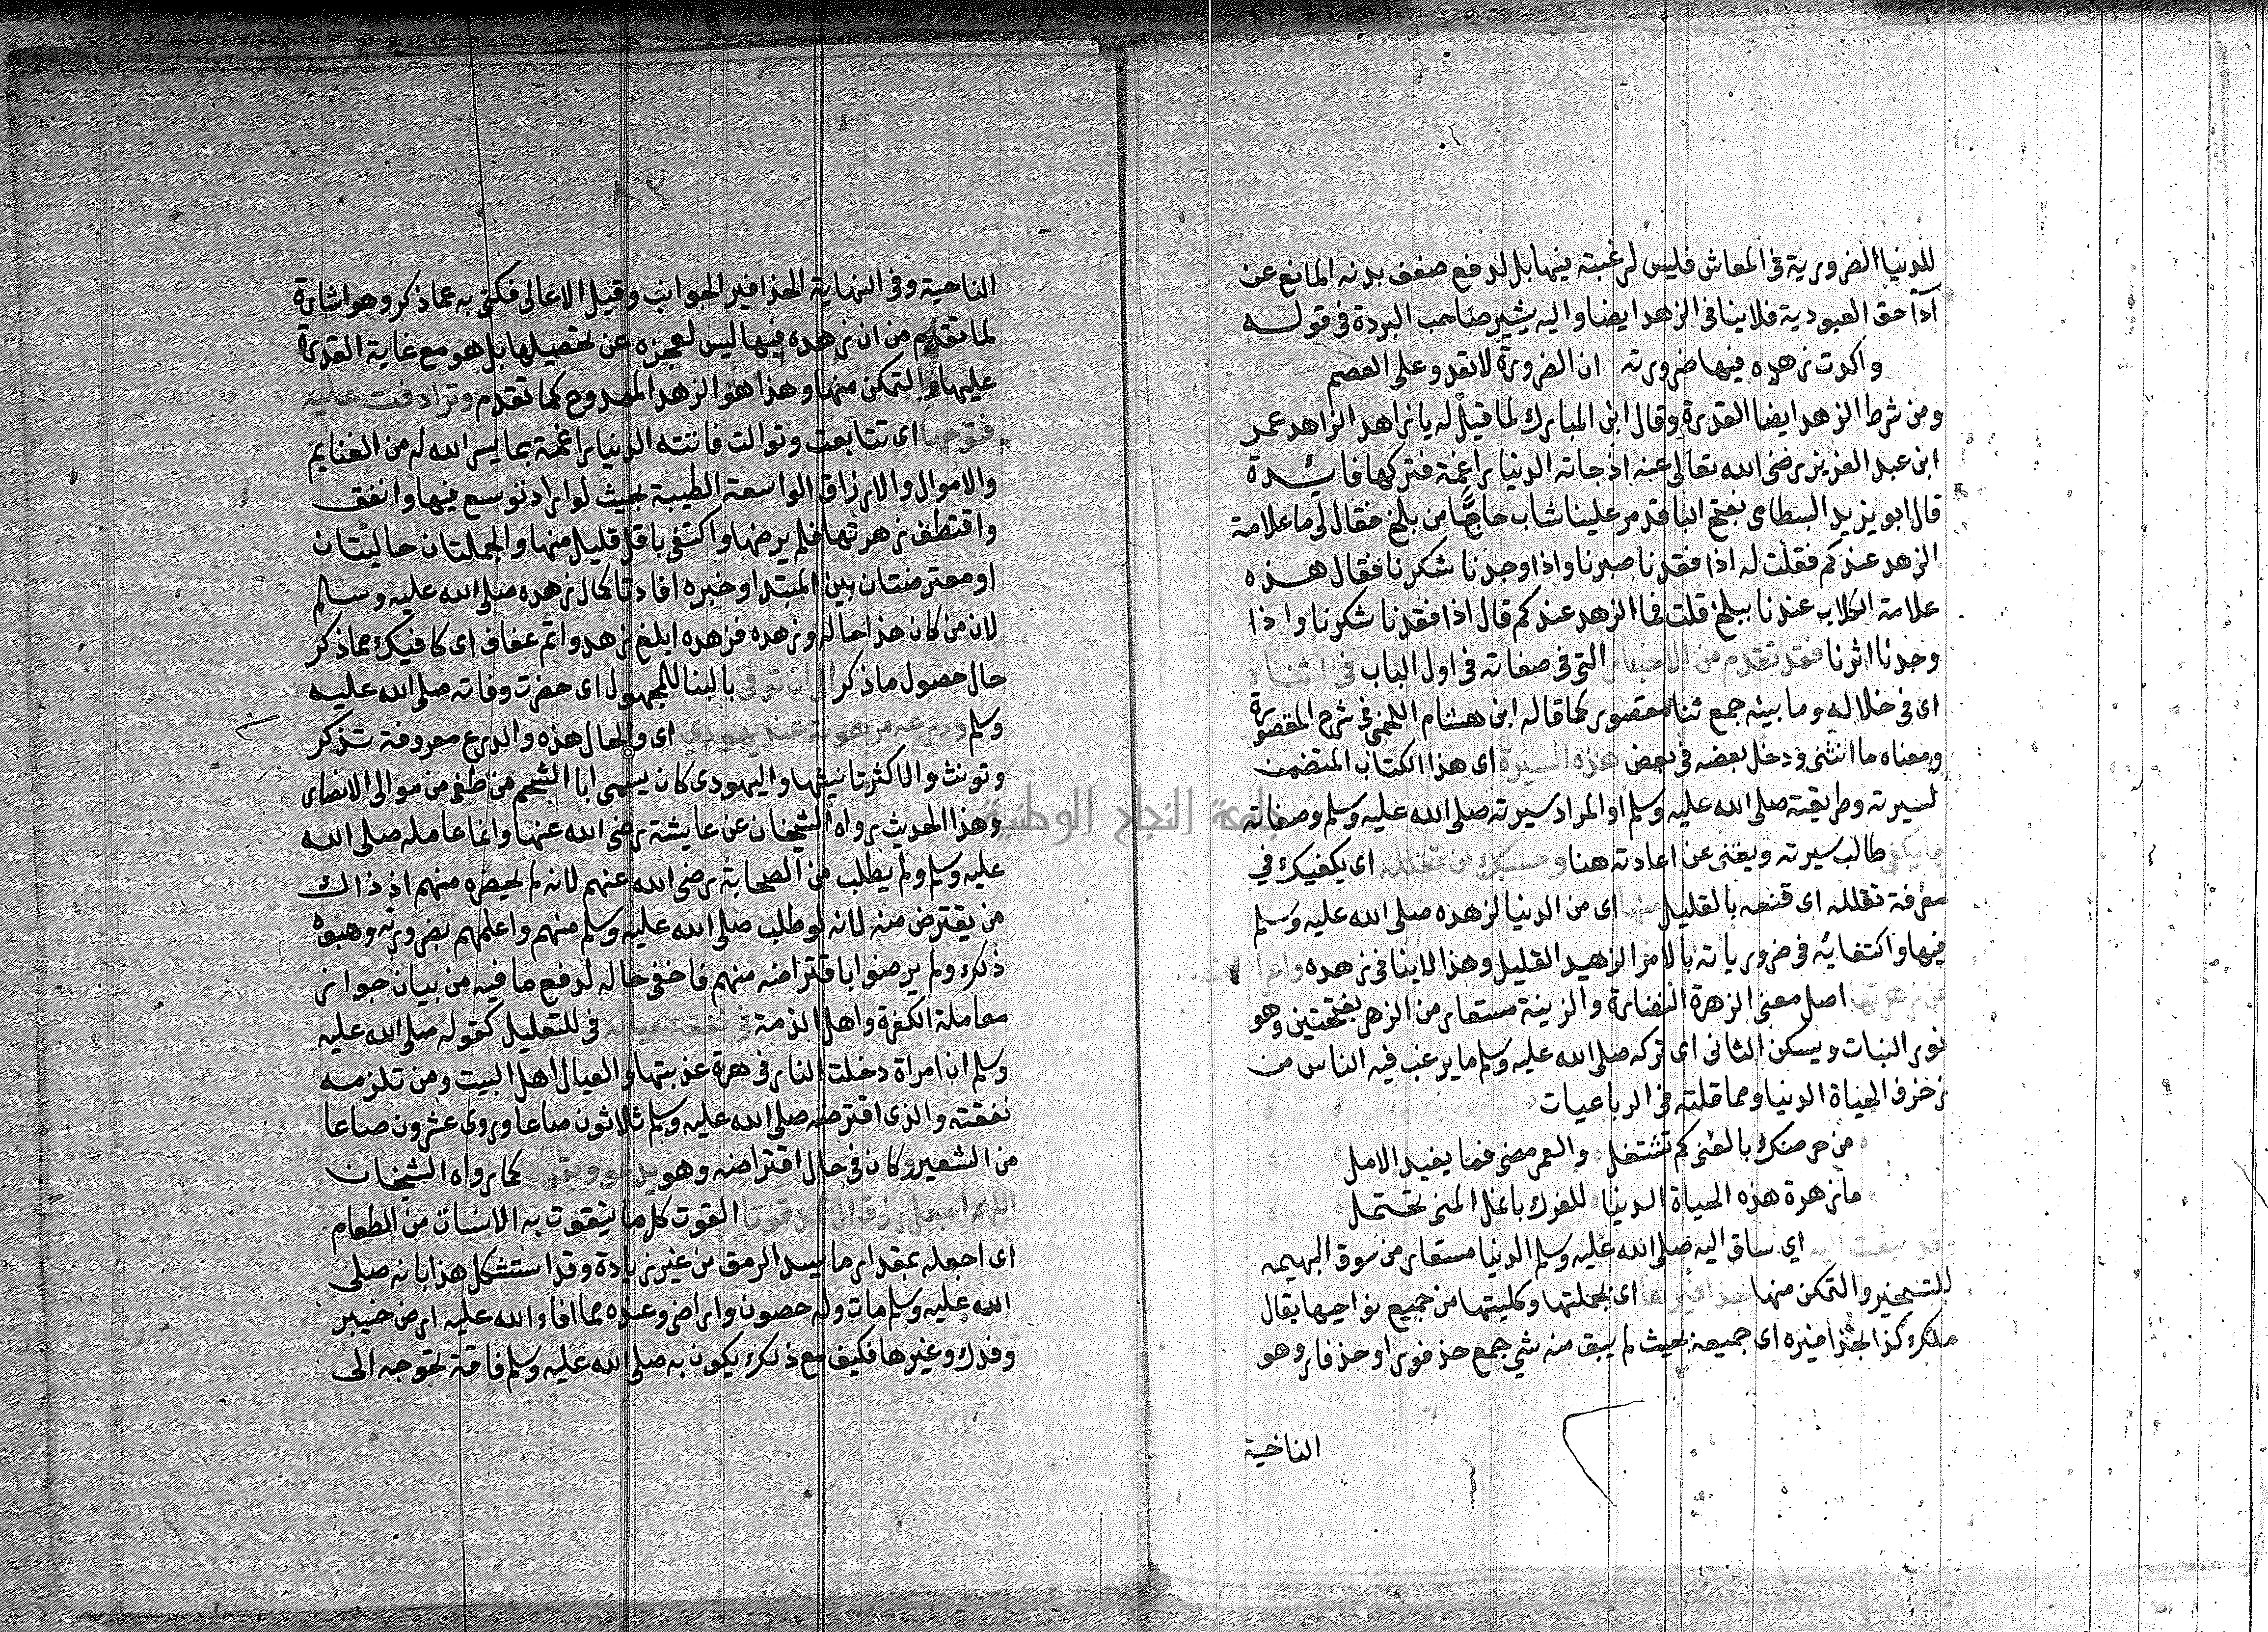 للدنيا الضرورية فى المعاش فليس لرغبته فيها بل لدفع ضعف بدنه المانع عن
آدآ حق العبودية فلا ينافى الزهد ايضا واليه يشير صاحب البردة فى قوله
واكدت زهده فيها ضرورته ان الضرورة لا تعدو على العصم
ومن شرط الزهد ايضا القدرة وقال ابن المبارك لما قيل له يا زاهد الزاهد عمر
ابن عبد العزيز رضى الله تعالى عنه اذ جاته الدنيا راغمة فتركها فايدة
قال ابو يزيد البسطامى بفتح البا قدم علينا شاب حاجًّا من بلخ فقال لى ما علامة
الزهد عندكم فقلت له اذا فقدنا صبرنا واذا وجدنا شكرنا فقال هذه
علامة الكلاب عندنا ببلخ قلت فما الزهد عندكم قال اذا فقدنا شكرنا واذا
وجدنا اثرنا فقد تقدم من الاخبار التى فى صفاته فى اول الباب فى اثناء
اى فى خلاله وما بينه جمع ثنا مقصور كما قاله ابن هشام اللخمى فى شرح المقصورة
ومعناه ما انثنى ودخل بعضه فى بعض هذه السيرة اى هذا الكتاب المتضمن
لسيرته وطريقته صلى الله عليه وسلم او المراد سيرته صلى الله عليه وسلم وصفاته
ما يكفى طالب سيرته ويغنى عن اعادته هنا وحسبك من تقلله اى يكفيك في
معرفة تقلله اى قنعه بالقليل منها اى من الدنيا لزهده صلى الله عليه وسلم
فيها واكتفايه فى ضرورياته بالامر الزهيد القليل وهذا لا ينافى زهده واعراضه
عن زهرتها اصل معنى الزهرة النضارة والزينة مستعار من الزهر بفتحتين وهو
نور النبات ويسكن الثانى اى تركه صلى الله عليه وسلم ما يرغب فيه الناس من
زخرف الحياة الدنيا ومما قلته فى الرباعيات
من حرصك بالغنى كم تشتغل والعمر مضى فما يفيد الامل
ما زهرة هذه الحياة الدنيا للفرك بانمل المنى تحتمل
وقد سيقت اليه اي ساق اليه صلى الله عليه وسلم الدنيا مستعار من سوق البهيمه
للتسخير والتمكن منها بحذافيرها اى بجملتها وكليتها من جميع نواحيها يقال
ملك كذا بحذافيره اى جميعه بحيث لم يبق منه شي جمع حذفور او حذفار وهو
الناحية
٨٢
الناحية وفى النهاية الحذافير الجوانب وقيل الاعالى فكنى به عما ذكر وهو اشارة
لما تقدم من ان زهده فيها ليس لعجزه عن تحصيلها بل هو مع غاية القدرة
عليها والتمكن منها وهذا هو الزهد الممدوح كما تقدم وترادفت عليه
فتوحها اى تتابعت وتوالت فاتته الدنيا راغمة بما يسر الله له من الغنايم
والاموال والارزاق الواسعة الطيبة بحيث لو اراد توسع فيها وانفق
واقتطف زهرتها فلم يرضها واكتفى باقل قليل منها والجملتان حاليتان
او معترضتان بين المبتدا وخبره افادتا كمال زهده صلى الله عليه وسلم
لان من كان هذا حاله وزهده فزهده ابلغ زهد واتم عفاف اى كافيك مما ذكر
حال حصول ما ذكر الى ان توفى بالبنا للمجهول اى حضرت وفاته صلى الله عليه
وسلم ودرعه مرهونة عند يهودي اى والحال هذه والدرع معروفة تذكر
وتونث والاكثر تانيثها واليهودى كان يسمى ابا الشحم من ظفر من موالى الانصار
وهذا الحديث رواه الشيخان عن عايشة رضى الله عنها وانما عامله صلى الله
عليه وسلم ولم يطلب من الصحابة رضى الله عنهم لانه لم يحضره منهم اذ ذاك
من يقترض منه لانه لو طلب صلى الله عليه وسلم منهم واعلمهم بضرورته وهبوه
ذلك ولم يرضوا باقتراضه منهم فاخفى حاله لدفع ما فيه من بيان جواز
معاملة الكفرة واهل الذمة فى نفقة عياله فى للتعليل كقوله صلى الله عليه
وسلم ان امراة دخلت النار فى هرة عذبتها والعيال اهل البيت ومن تلزمه
نفقته والذى اقترضه صلى الله عليه وسلم ثلاثون صاعا وروى عشرون صاعا
من الشعير وكان فى حال اقتراضه وهو يدعو ويقول كما رواه الشيخان
اللهم اجعل رزق ال محمد قوتا القوت كل ما يتقوت به الانسان من الطعام
اى اجعله بمقدار ما يسد الرمق من غير زيادة وقد استشكل هذا بانه صلى
الله عليه وسلم مات وله حصون واراض وعده مما افاء الله عليه ارض خيبر
وفدك وغيرها فكيف مع ذلك يكون به صلى الله عليه وسلم فاقة تحوجه الى
جامعة النجاح الوطنية